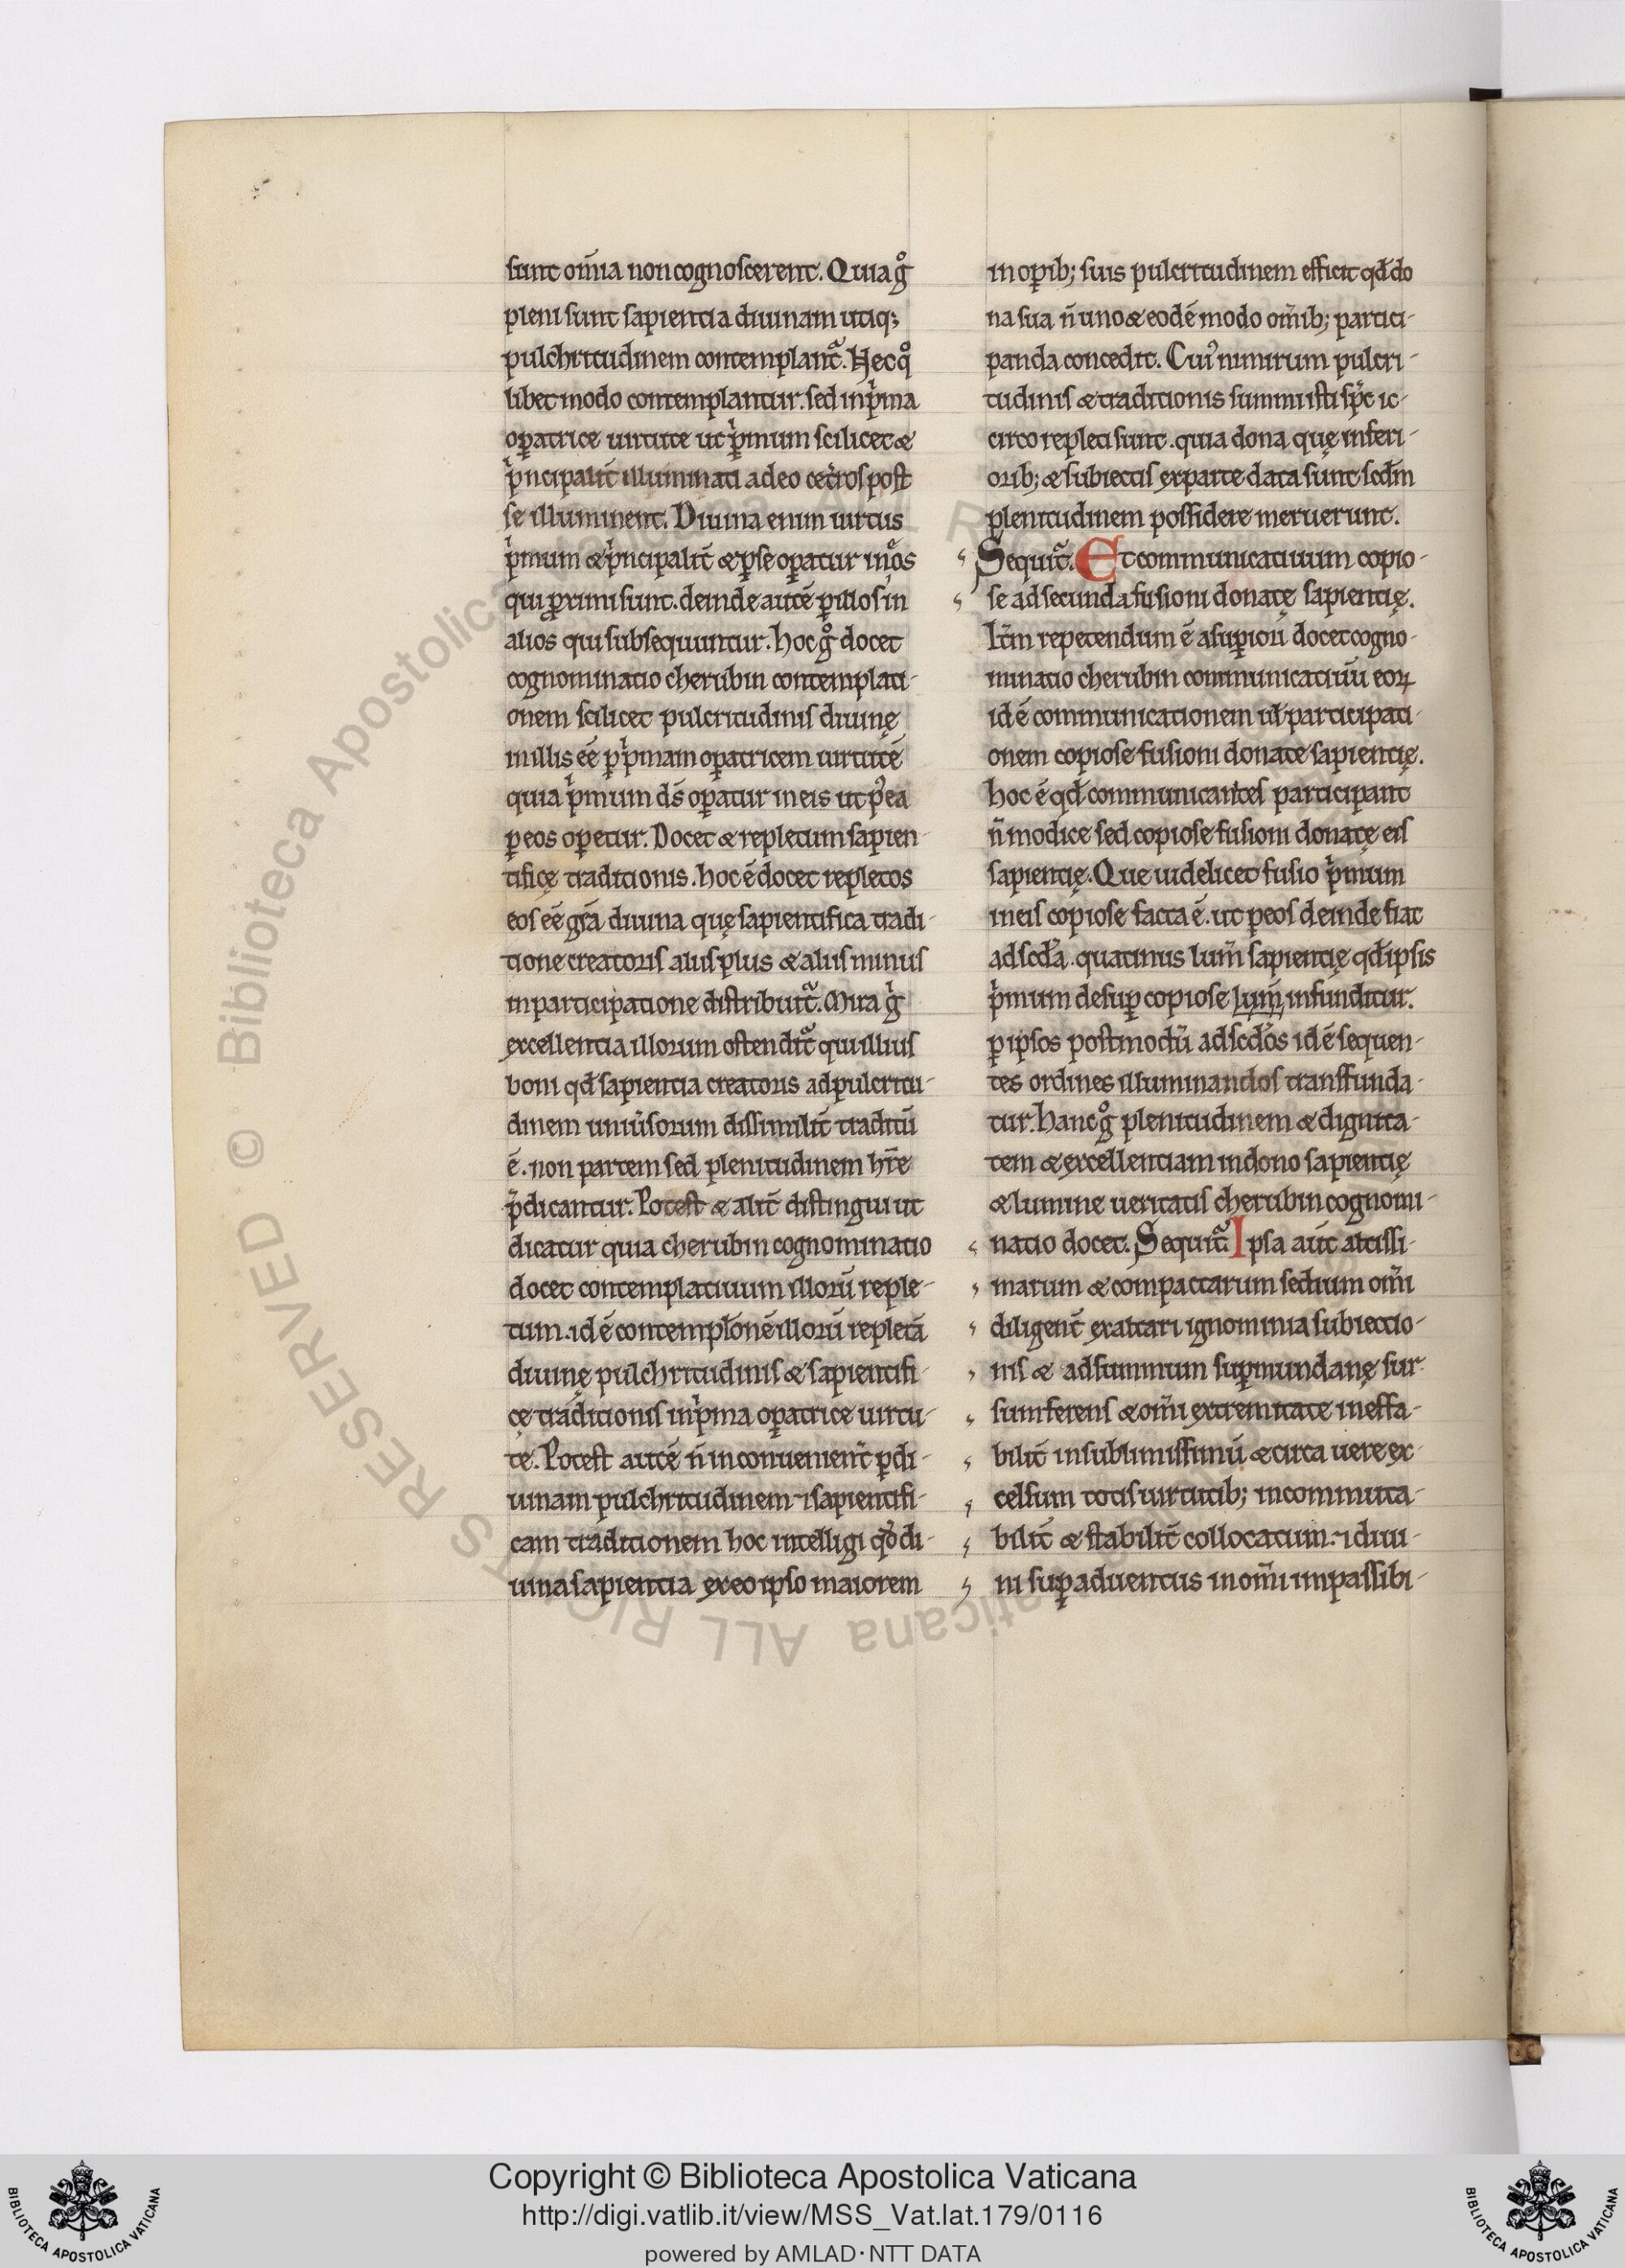 sunt om̄ia non cognoscerent. Quia gͦ
pleni sunt sapientia diuinam utiq;
pulchritudinem contemplant᷑. Hec qͦ
libet modo contemplantur. sed in pͥma
op̱atrice uirtute ut pͥmum scilicet &
pͥncipalit̄ illuminati a deo cet̄ros post
se illuminent. Diuina enim uirtus
pͥmum & pͥncipalit̄ & p̱ se op̱atur in qͦs
qui ꝓximi sunt. deinde autē p̱ illos in
alios qui subsequuntur. hoc gͦ docet
cognominatio cherubin contemplati-
onem scilicet pulcritudinis diuinę
in illis eē p̱ pͥmam op̱atricem uirtutē
quia pͥmum ds̄ op̱atur in eis ut p̱ ea
p̱ eos op̱etur. Docet & repletum sapien-
tificę traditionis. hoc ē docet repletos
eos eē gr̄a diuina quę sapientifica tradi-
tione creatoris aliis plus & aliis minus
in participatione distribuit᷑. Mira gͥ
excellentia illorum ostendit᷑ qui illius
boni qđ sapientia creatoris ad pulcritu-
dinem uniūsorum dissimilit̄ traditū
ē. non partem sed plenitudinem hr̄e
p̄dicantur. Potest & alit̄ distingui ut
dicatur quia cherubin cognominatio
docet contemplatiuum illorū reple-
tum. id ē contempl̄onē illorū repletā
diuinę pulchritudinis & sapientifi-
cę traditionis in pͥma op̱atrice uirtu-
te. Potest autē n̄ inconuenient̄ p̱ di-
uinam pulchritudinem ⁊ sapientifi-
cam traditionem hoc intelligi qđ di-
uina sapientia ex eo ipso maiorem
in op̱ib; suis pulcritudinem efficit qđ do
na sua n̄ uno & eodē modo om̄ib; partici-
panda concedit. Cuiꝰ nimirum pulcri-
tudinis & traditionis summi isti sp̄c ic-
circo repleti sunt. quia dona quę inferi-
orib; & subiectis ex parte data sunt scd̄m
plenitudinem possidere meruerunt.
Sequit᷑. Et communicatiuum copio-
se ad secunda fusioni donatę sapientię.
It̄m repetendum ē a sup̱iorī docet cogno-
minatio cherubin communicatiuū eoꝝ
id ē communicationem uł participati-
onem copiose fusioni donate sapientię.
hoc ē qđ communicantes participant
n̄ modice sed copiose fusioni donatę eis
sapientię. Que uidelicet fusio pͥmum
in eis copiose facta ē. ut p̱ eos deinde fiat
ad scd̄a. quatinus lum̄ sapientię qđ ipsis
pͥmum desup̱ copiose lum̄ infunditur.
p̱ ipsos postmodū ad scd̄os id ē sequen-
tes ordines illuminandos transfunda-
tur. Hanc gͦ plenitudinem & dignita-
tem & excellentiam in dono sapientię
& lumine ueritatis cherubin cognomi-
natio docet. Sequit᷑ Ipsa aūt altissi-
marum & compactarum sedium om̄i
diligent̄ exaltari ignominia subiectio-
nis & ad summum sup̱mundanę sur
sumferens & om̄i extremitate ineffa-
bilit̄ in sublimissimū & circa uere ex
celsum totis uirtutib; incommuta-
bilit̄ & stabilit̄ collocatum. ⁊ diui-
ni sup̱aduentus in om̄i impassibi-
Copyright © Biblioteca Apostolica Vaticana
http://digi.vatlib.it/view/MSS_Vat.lat.179/0116
powered by AMLAD·NTT DATA
BIBLIOTECA APOSTOLICA VATICANA
BIBLIOTECA APOSTOLICA VATICANA
© Biblioteca Apostolica Vaticana ALL RIGHTS RESERVED